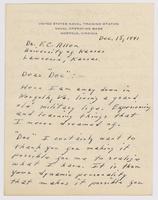 UNITED STATES NAVAL TRAINING STATION
NAVAL OPERATING BASE
NORFOLK, VIRGINIA
Dec. 15, 1941
Dr. F.C. Allen
University of Kansas
Lawrence, Kansas.
Dear "Doc":-
Here I am away down in
Norfolk, Va. living a grand
old military life. Experiencing
and learning things that
I never dreamed of.
"Doc" I certainly want to
thank you for making it
possible for me to realize
what I have. It is then
your dynamic personality
that makes it possible for